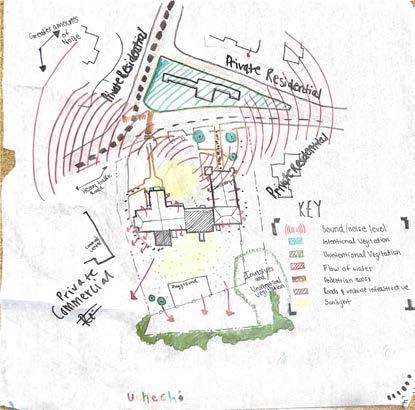 Greater amounts
of
Noise
Private Residential
Private Residential
Private Residential
Private
Commercial
Playground
Invasives
and
Unintentional
Vegetation
KEY
Sound/noise level
Intentional Vegitation
Unintentional Vegitation
Flow of water
Pedestrian areas
Roads & vehicle infrastructure
Sunlight
Uchechi